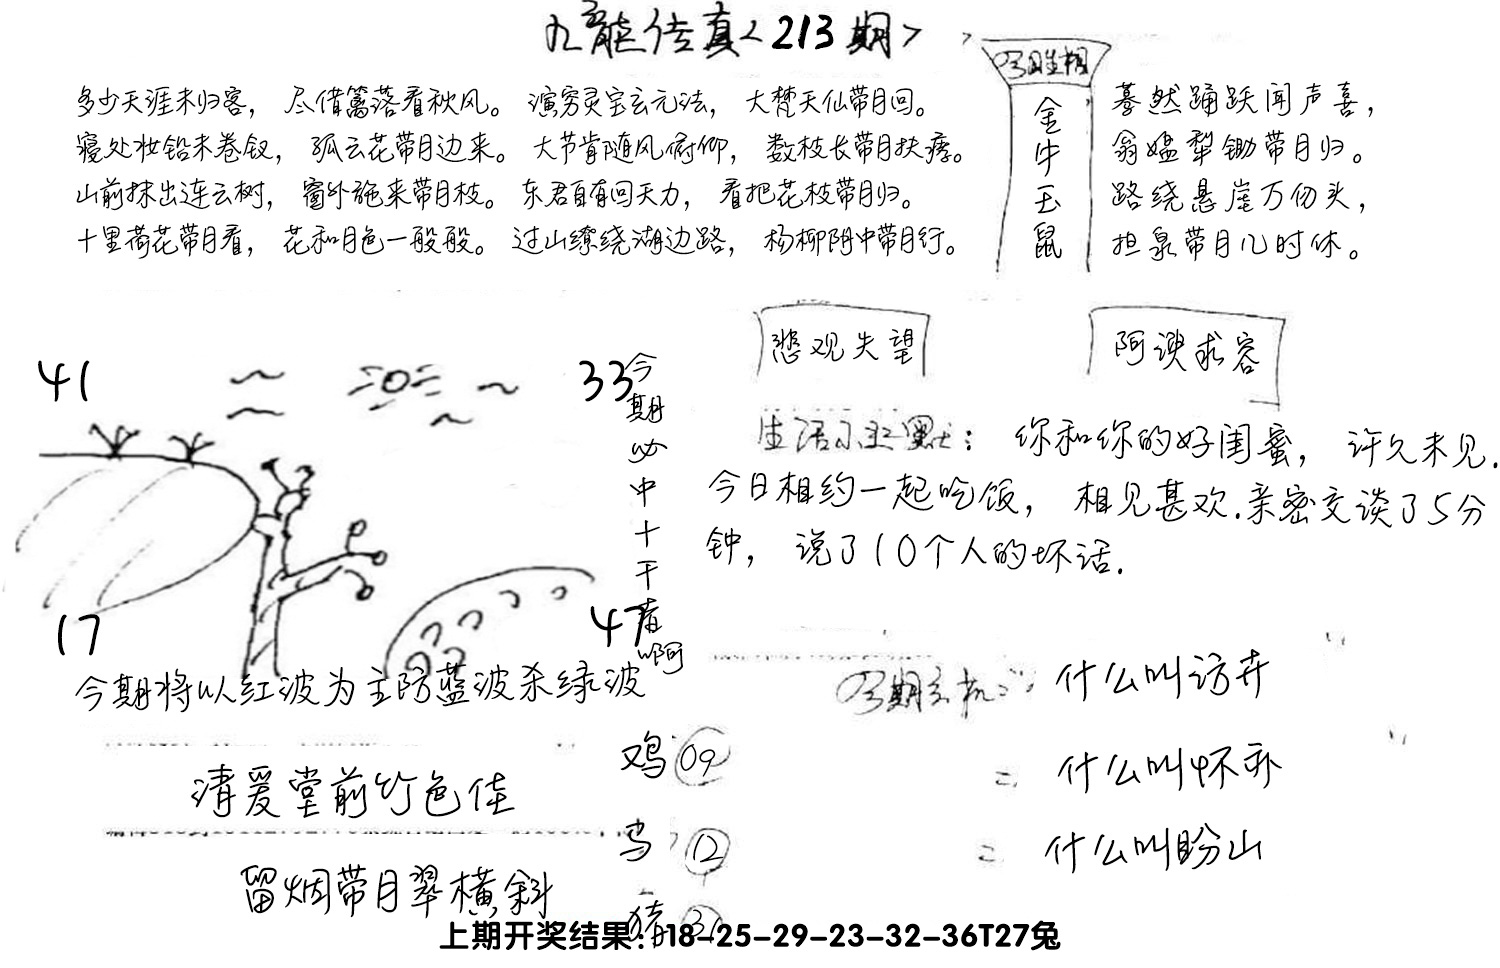 九龙传真<213期>
今日生相
金牛玉鼠
多少天涯未归客，尽借篱落看秋风。演穷灵宝玄元法，大梵天仙带月回。
寝处妆铅未卷钗，孤云花带月边来。大节肯随风俯仰，数枝长带月扶疏。
山前抹出连云树，窗外施来带月枝。东君自有回天力，看把花枝带月归。
十里荷花带月看，花和月色一般般。过山缭绕湖边路，杨柳阴中带月行。
蓦然踊跃闻声喜，
翁媪犁锄带月归。
路绕悬崖万仞头，
担泉带月几时休。
悲观失望
阿谀求容
41
33
17
47
今期必中十干者啊
生活小幽默：你和你的好闺蜜，许久未见.
今日相约一起吃饭，相见甚欢.亲密交谈了5分
钟，说了10个人的坏话.
今期将以红波为主防蓝波杀绿波
今期玄机: 什么叫访卉
= 什么叫怀玡
= 什么叫盼山
清爱堂前竹色佳
留烟带月翠横斜
鸡 09
鸟 12
猪
上期开奖结果：18-25-29-23-32-36T27兔